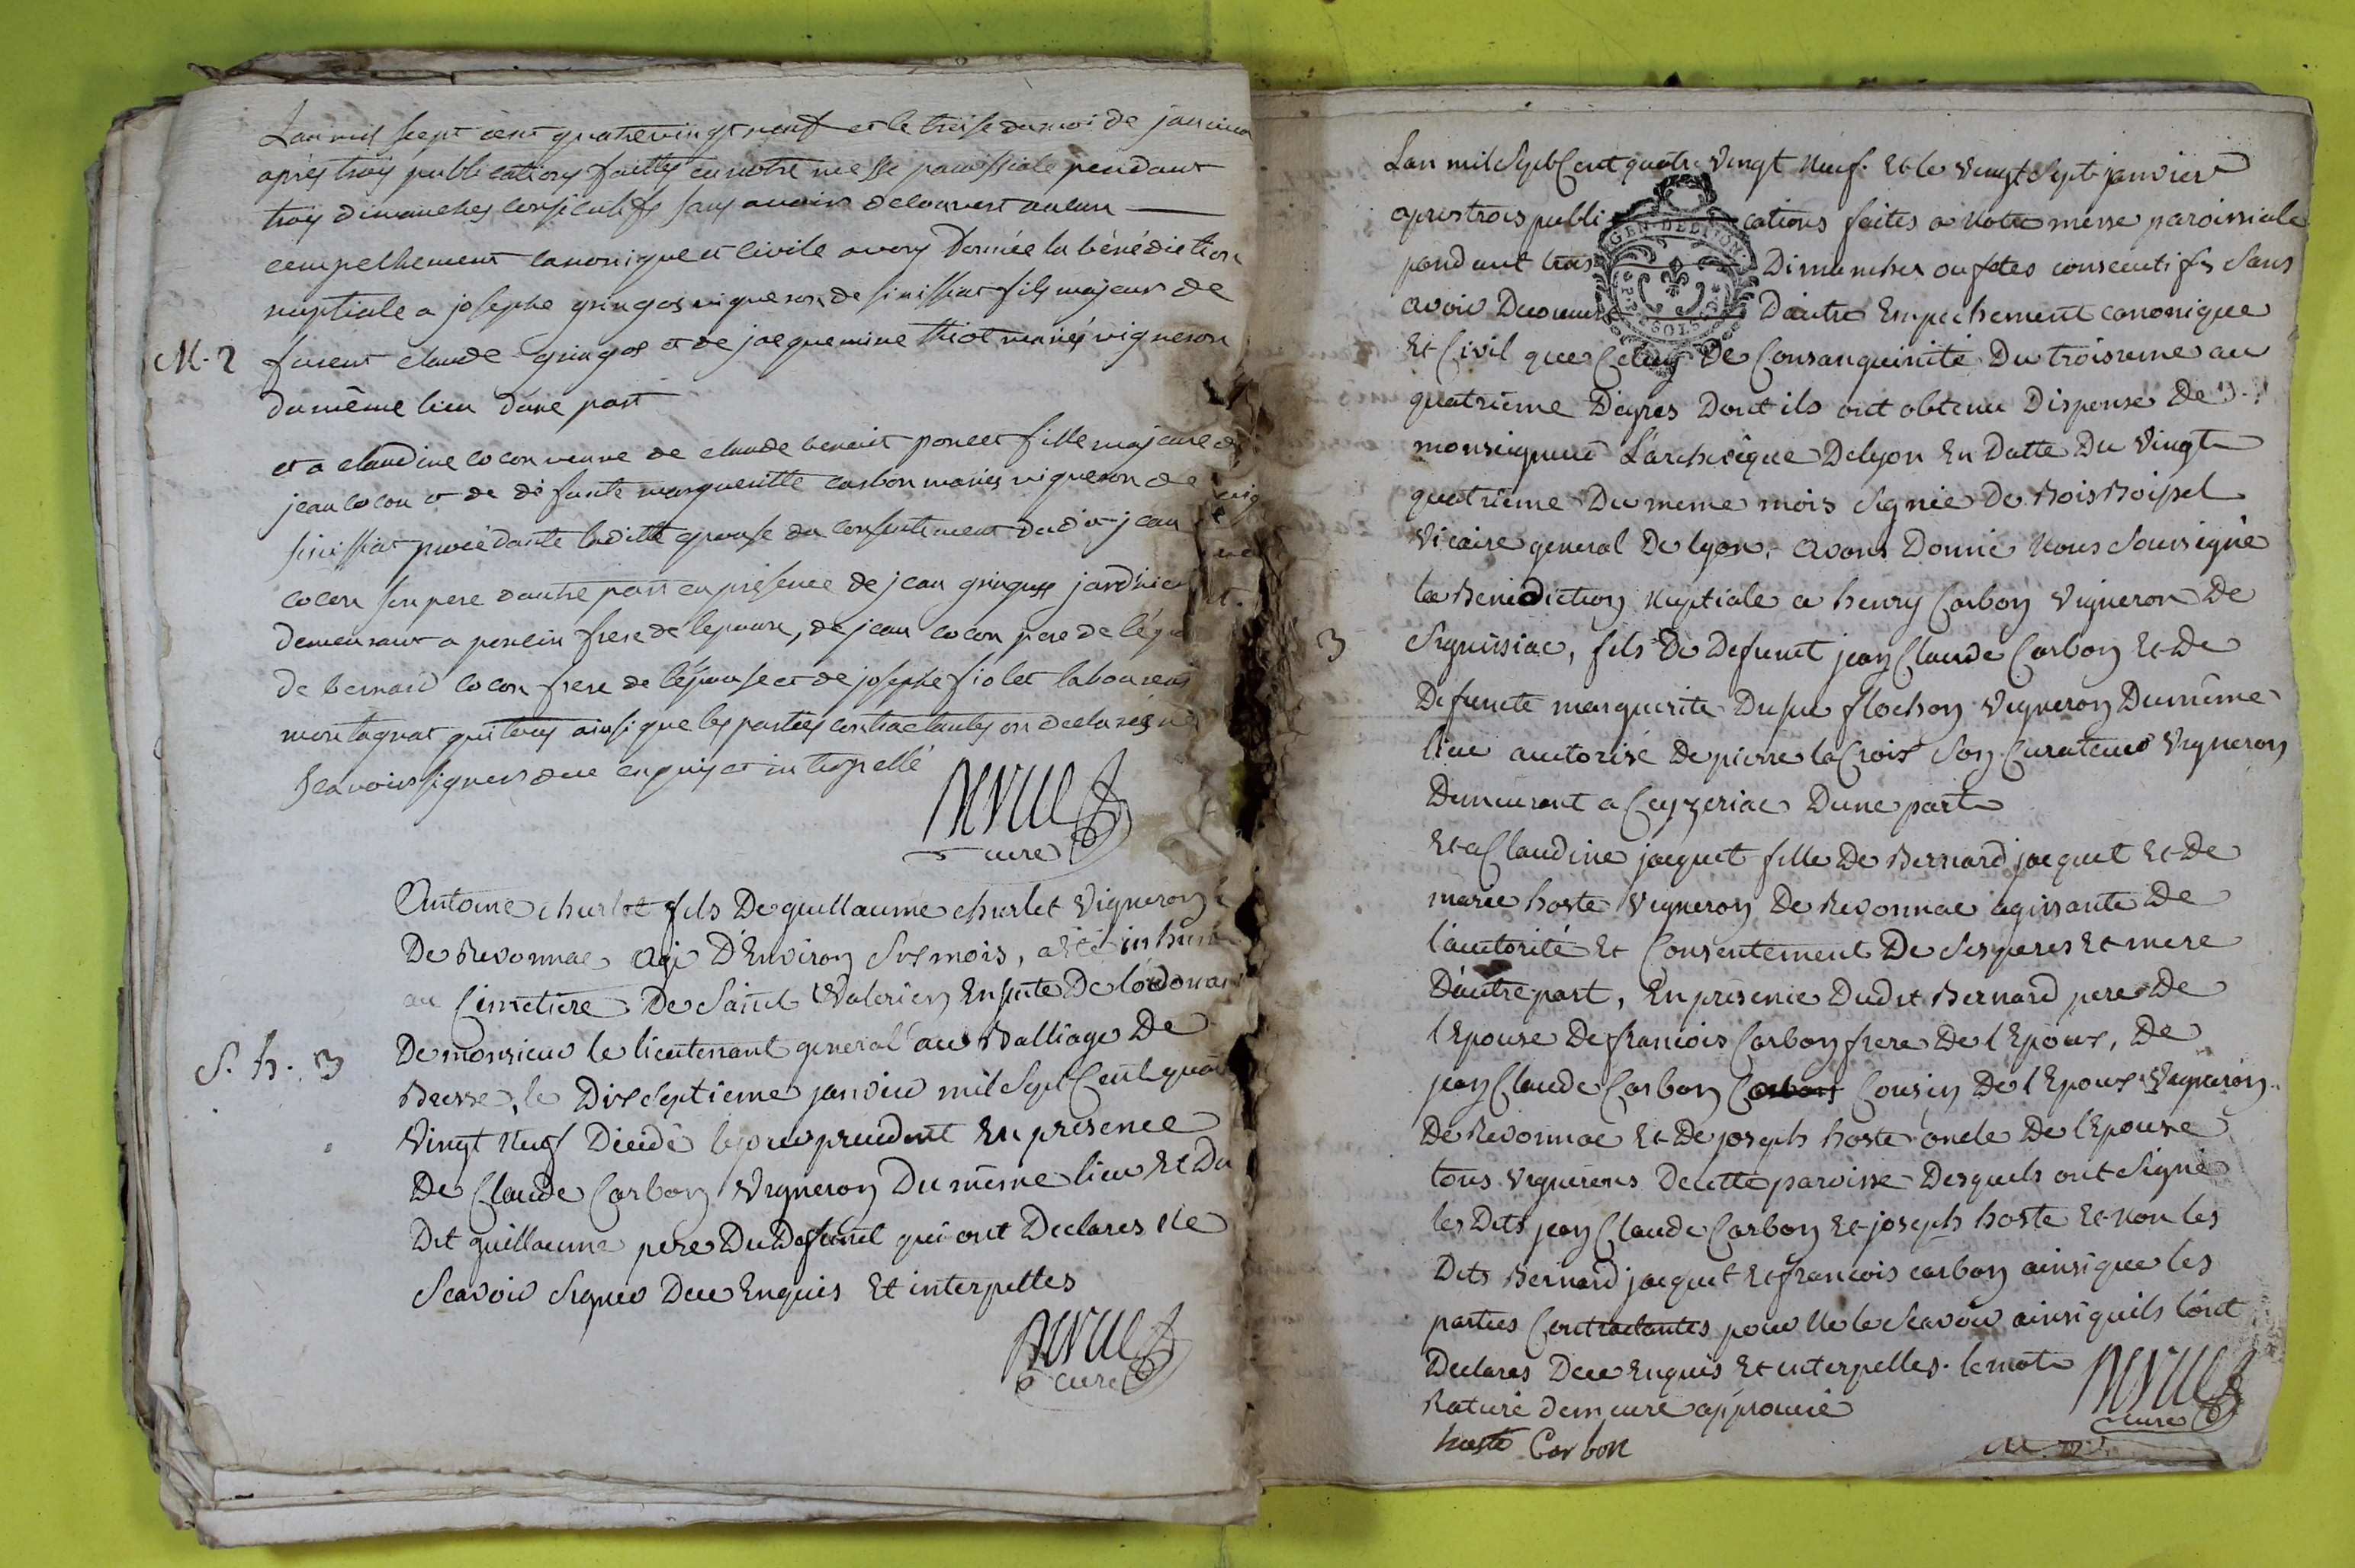 Lan mil sept cent quatrevingt neuf et le treise du moi de janvier
après trois publications faittes en notre messe paroissiale pendant
trois dimanches consecutifs sans avoir decouvert aucun
empechement canonique et civile avons donnée la bénédiction
nuptiale a josephe gringos vigneron de sinissiat fils majeur de
M. 2
furent claude gringos et de jacquemine thiot mariés vigneron
du même lieu d'une part
et a claudine cocon veuve de claude benoit poncet fille majeure de
jean cocon et de défunte margueritte carbon mariés vigneron de
sinissiat procédante laditte epouse du consentement dudit jean
cocon son pere d'autre part en présence de jean gringoss jardinier
demeurant a poncin frere de lepoux, de jean cocon pere de l'épouse
de bernard cocon frere de l'épouse et de josephe fiolet laboureur
montagnat qui tous ainsi que les parties contractantes on declaré ne
scavoir signer de ce enquis et interpellé
curé
Antoine churlet fils De guillaume churlet Vigneron
De Revonnac agé D'Environ Six mois, a été inhumé
au Cimetiere De Saint Valerien En suite De l'ordonan
De monsieur le lieutenant general au Balliage De
S. h. 3
Bresse, le Dixseptieme janvier mil Sept Cent quatre
Vingt Neuf Décédé le jour precedent En presence
De Claude Carbon Vigneron Du même lieu Et Du
Dit guillaume pere Du Defunt qui ont Declarés Ne
Scavoir Signer De ce Enquis Et interpellés
curé
Lan mil Sept Cent quatre Vingt Neuf. Et le Vingt Sept janvier
apres trois publications faites a Notre messe paroissiale
pendant trois Dimanches ou fetes consecutifs Sans
GEN. DE DIJON
avoir Decouvert D'autre Empechement canonique
Et Civil que Celuy De Consanguinité Du troisieme au
quatrième Degres Dont ils ont obtenu Dispense De
monseigneur L'archevêque De lyon En Datte Du Vingt
quatrieme Du meme mois Signée De Bois Boissel
Vicaire general De lyon, avons Donné Nous Soussigné
la Benediction Nuptiale a henry Carbon Vigneron De
3
Signissiac, fils De Defunt jean Claude Carbon Et De
Defuncte marguerite flochon Vigneron Du même
lieu auctorisé De pierre la Croix Son Curateur Vigneron
Demeurant a Ceyzeriac D'une part
Et a Claudine jacquet fille De Bernard jacquet Et De
marie hoste Vigneron De Revonnac agissante De
l'autorité Et Consentement De Ses peres Et mere
D'autre part, En presence Dudit Bernard pere De
l'Epouse De francois Carbon frere De l'Epoux, De
jean Claude Carbon Carbon Cousin De l'Epoux Vigneron
De Revonnac Et De joseph hoste oncle De l'Epouse
tous Vignerons De cette paroisse Desquels ont Signé
les Dits jean Claude Carbon Et joseph hoste Et Non les
Dits Bernard jacquet Et francois carbon ainsi que les
parties Contractantes pour Ne le Scavoir ainsi quils l'ont
Declarés De ce Enquis Et interpelles. le mot
Raturé demeure approuvé
curé
hoste Carbon